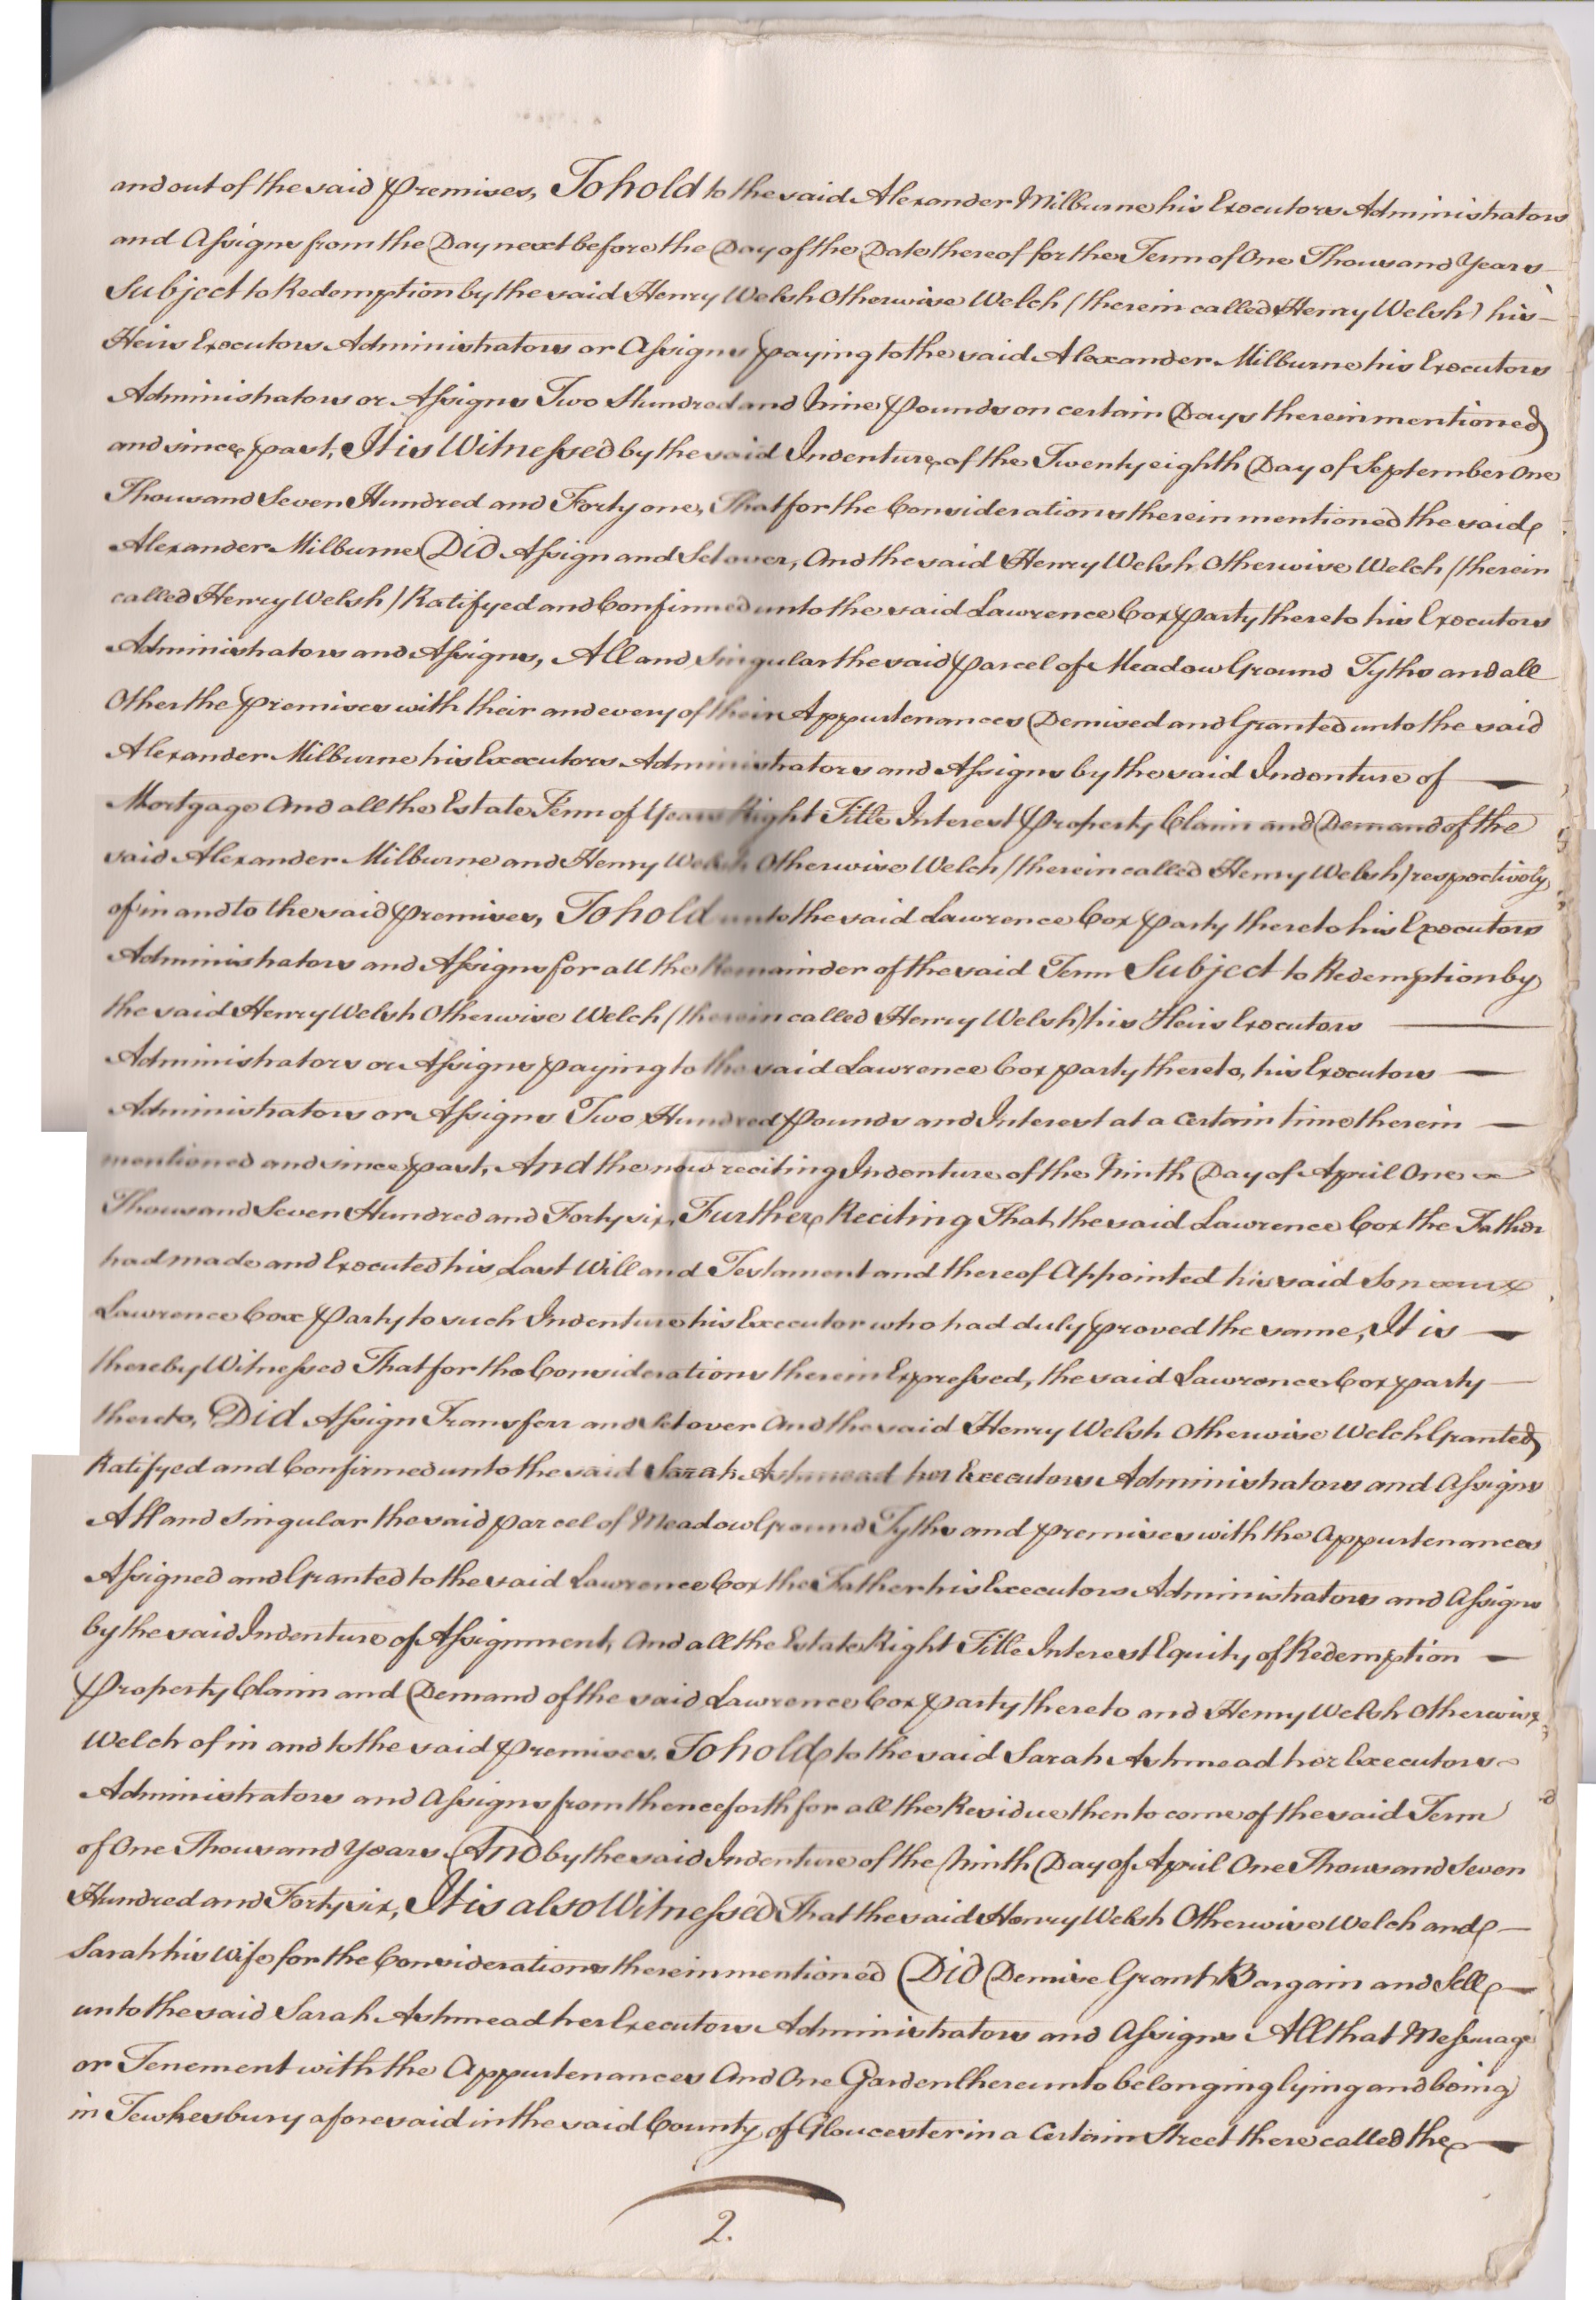 and out of the said premises, To hold to the said Alexander Milburne his Executors Administrators
and Assigns from the Day next before the Day of the Date thereof for the Term of One Thousand Years
Subject to Redemption by the said Henry Welsh Otherwise Welch (therein called Henry Welsh) his
Heirs Executors Administrators or Assigns paying to the said Alexander Milburne his Executors
Administrators or Assigns Two Hundred and Nine Pounds on certain Days therein mentioned
and since past, It is Witnessed by the said Indenture of the Twenty eighth Day of September One
Thousand Seven Hundred and Forty one, That for the Considerations therein mentioned the said
Alexander Milburne Did Assign and Set over, And the said Henry Welsh Otherwise Welch (therein
called Henry Welsh) Ratifyed and Confirmed unto the said Lawrence Cox party thereto his Executors
Administrators and Assigns, All and Singular the said parcel of Meadow Ground Tyths and all
Other the premises with their and every of their Appurtenances Demised and Granted unto the said
Alexander Milburne his Executors Administrators and Assigns by the said Indenture of
Mortgage And all the Estate Term of Years Right Title Interest property Claim and Demand of the
said Alexander Milburne and Henry Welsh Otherwise Welch (therein called Henry Welsh) respectively
of in and to the said premises, To hold unto the said Lawrence Cox party thereto his Executors
Administrators and Assigns for all the Remainder of the said Term Subject to Redemption by
the said Henry Welsh Otherwise Welch (therein called Henry Welsh) his Heirs Executors
Administrators or Assigns paying to the said Lawrence Cox party thereto, his Executors
Administrators or Assigns Two Hundred Pounds and Interest at a Certain time therein
mentioned and since past, And the now reciting Indenture of the Ninth Day of April One
Thousand Seven Hundred and Forty six, Further Reciting That the said Lawrence Cox the Father
had made and Executed his Last Will and Testament and thereof Appointed his said Son
Lawrence Cox party to such Indenture his Executor who had duly proved the same, It is
thereby Witnessed That for the Considerations therein Expressed, the said Lawrence Cox party
thereto, Did Assign Transferr and Set over And the said Henry Welsh Otherwise Welch Granted
Ratifyed and Confirmed unto the said Sarah Ashmead her Executors Administrators and Assigns
All and Singular the said parcel of Meadow Ground Tyths and premises with the Appurtenances
Assigned and Granted to the said Lawrence Cox the Father his Executors Administrators and Assigns
by the said Indenture of Assignment, And all the Estate Right Title Interest Equity of Redemption
Property Claim and Demand of the said Lawrence Cox party thereto and Henry Welsh Otherwise
Welch of in and to the said premises, To hold to the said Sarah Ashmead her Executors
Administrators and Assigns from thenceforth for all the Residue then to come of the said Term
of One Thousand Years, And by the said Indenture of the Ninth Day of April One Thousand Seven
Hundred and Forty six, It is also Witnessed That the said Henry Welsh Otherwise Welch and
Sarah his Wife for the Considerations therein mentioned Did Demise Grant Bargain and Sell
unto the said Sarah Ashmead her Executors Administrators and Assigns All that Messuage
or Tenement with the Appurtenances And One Garden thereunto belonging lying and being
in Tewkesbury aforesaid in the said County of Gloucester in a Certain Street there called the
2.